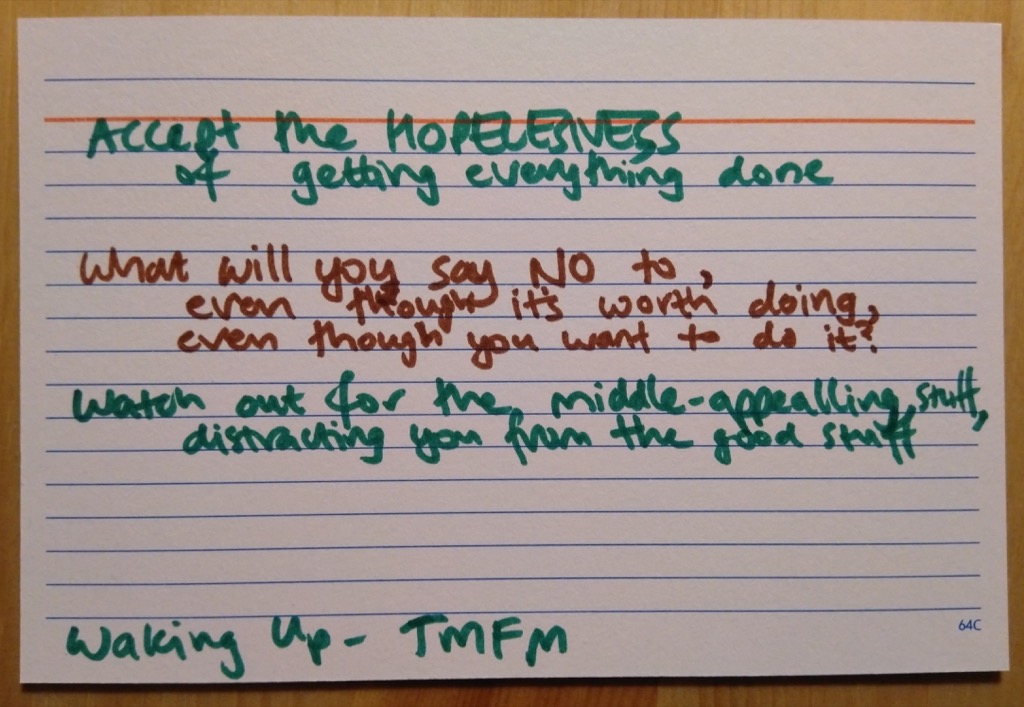 Accept the HOPELESSNESS
of getting everything done
What will you say NO to,
even though it's worth doing,
even though you want to do it?
Watch out for the middle-appealling stuff,
distracting you from the good stuff
64C
Waking Up - TMFM